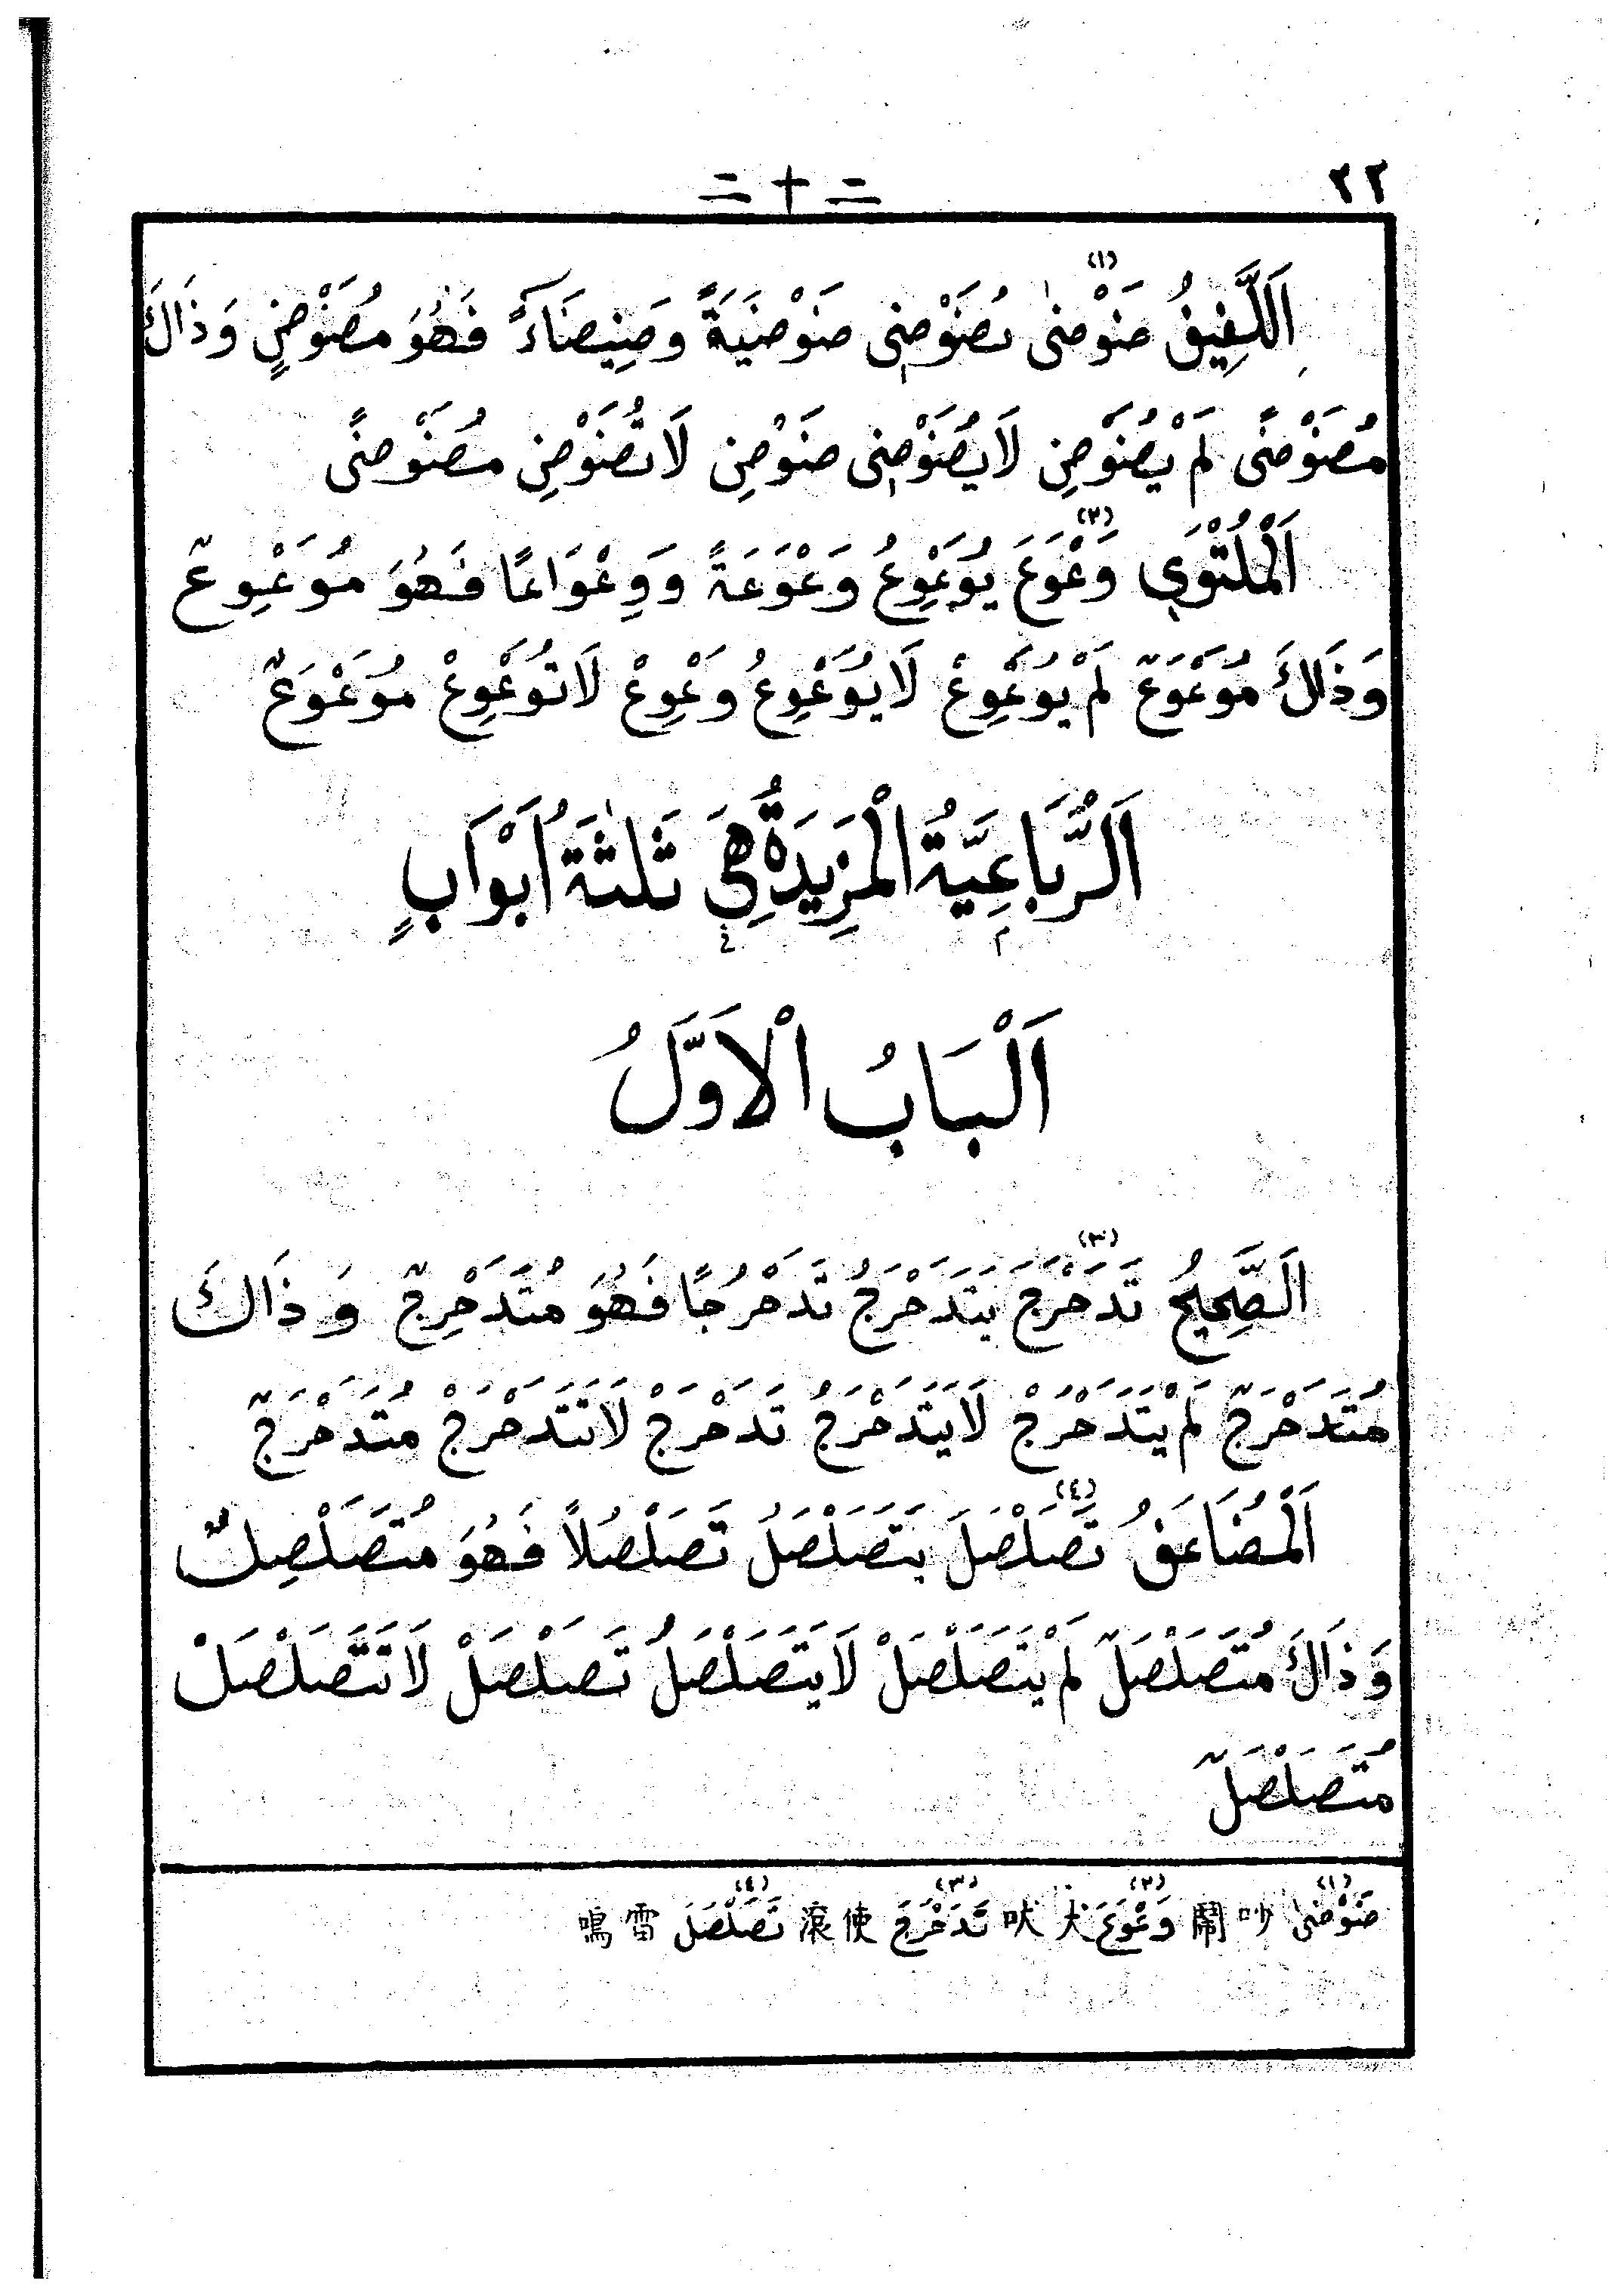 ٢٢ = † =
اَللَّفِيفُ ضَوْضٰى يُضَوْضِى ضَوْضَيَةً وضِيضَاءً فَهُوَ مُضَوْضٍ وَذَاكَ
مُضَوْضًى لَمْ يُضَوْضِ لَا يُضَوْضِى ضَوْضِ لَا تُضَوْضِ مُضَوْضًى
اَلْمُلْتَوِى (٢) وَعْوَعَ يُوَعْوِعُ وَعْوَعَةً وَوِعْوَاعًا فَهُوَ مُوَعْوِعٌ
وَذَالكَ مُوَعْوَعٌ لَمْ يُوَعْوِعْ لَا يُوَعْوِعُ وَعْوِعْ لَا تُوَعْوِعْ مُوَعْوَعٌ
اَلرُّبَاعِيَّةُ الْمَزِيدَةُ هِىَ ثَلٰثَةُ اَبْوَابٍ
اَلْبَابُ الْاَوَّلُ
اَلصَّحِيحُ (٣) تَدَحْرَجَ يَتَدَحْرَجُ تَدَحْرُجًا فَهُوَ مُتَدَحْرِجٌ وَذَاكَ
مُتَدَحْرَجٌ لَمْ يَتَدَحْرَجْ لَا يَتَدَحْرَجُ تَدَحْرَجْ لَا تَتَدَحْرَجْ مُتَدَحْرَجٌ
اَلْمُضَاعَفُ (٤) تَصَلْصَلَ يَتَصَلْصَلُ تَصَلْصُلاً فَهُوَ مُتَصَلْصِلٌ
وَذَاكَ مُتَصَلْصَلٌ لَمْ يَتَصَلْصَلْ لَا يَتَصَلْصَلُ تَصَلْصَلْ لَا تَتَصَلْصَلْ
مُتَصَلْصَلٌ
(١) ضَوْضٰى 吵鬧 (٢) وَعْوَعَ 犬吠 (٣) تَدَحْرَجَ 使滾 (٤) تَصَلْصَلَ 雷鳴